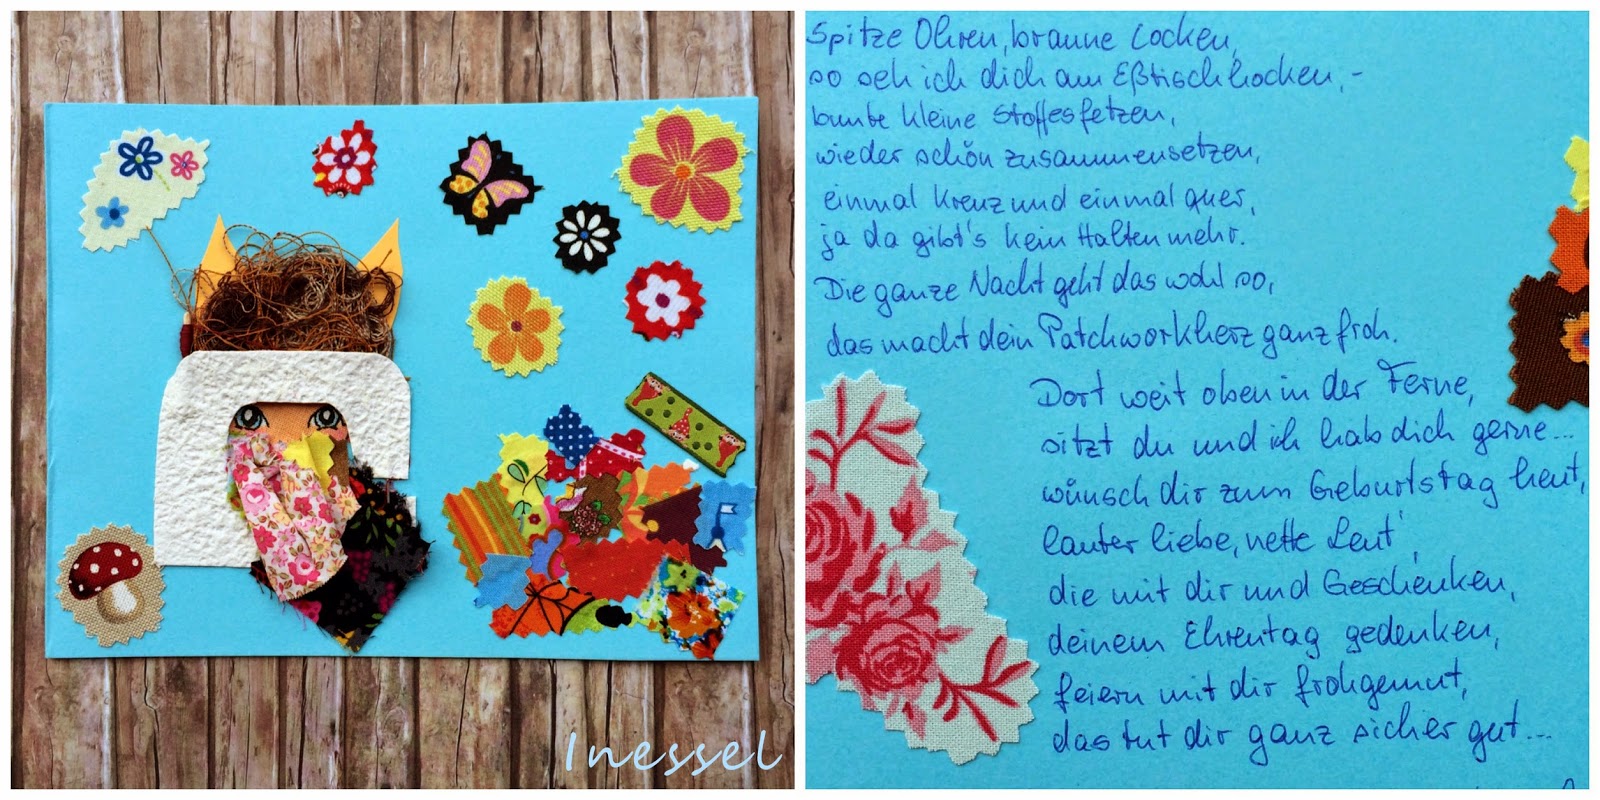 Inessel
Spitze Ohren, braune Locken,
so seh ich dich am Eßtisch hocken, -
bunte kleine Stoffesfetzen,
wieder schön zusammensetzen,
einmal kreuz und einmal quer,
ja da gibt's kein Halten mehr.
Die ganze Nacht geht das wohl so,
das macht dein Patchworkherz ganz froh.
Dort weit oben in der Ferne,
sitzt du und ich hab dich gerne...
wünsch dir zum Geburtstag heut,
lauter liebe, nette Leut',
die mit dir und Geschenken,
deinem Ehrentag gedenken,
feiern mit dir frohgemut,
das tut dir ganz sicher gut...